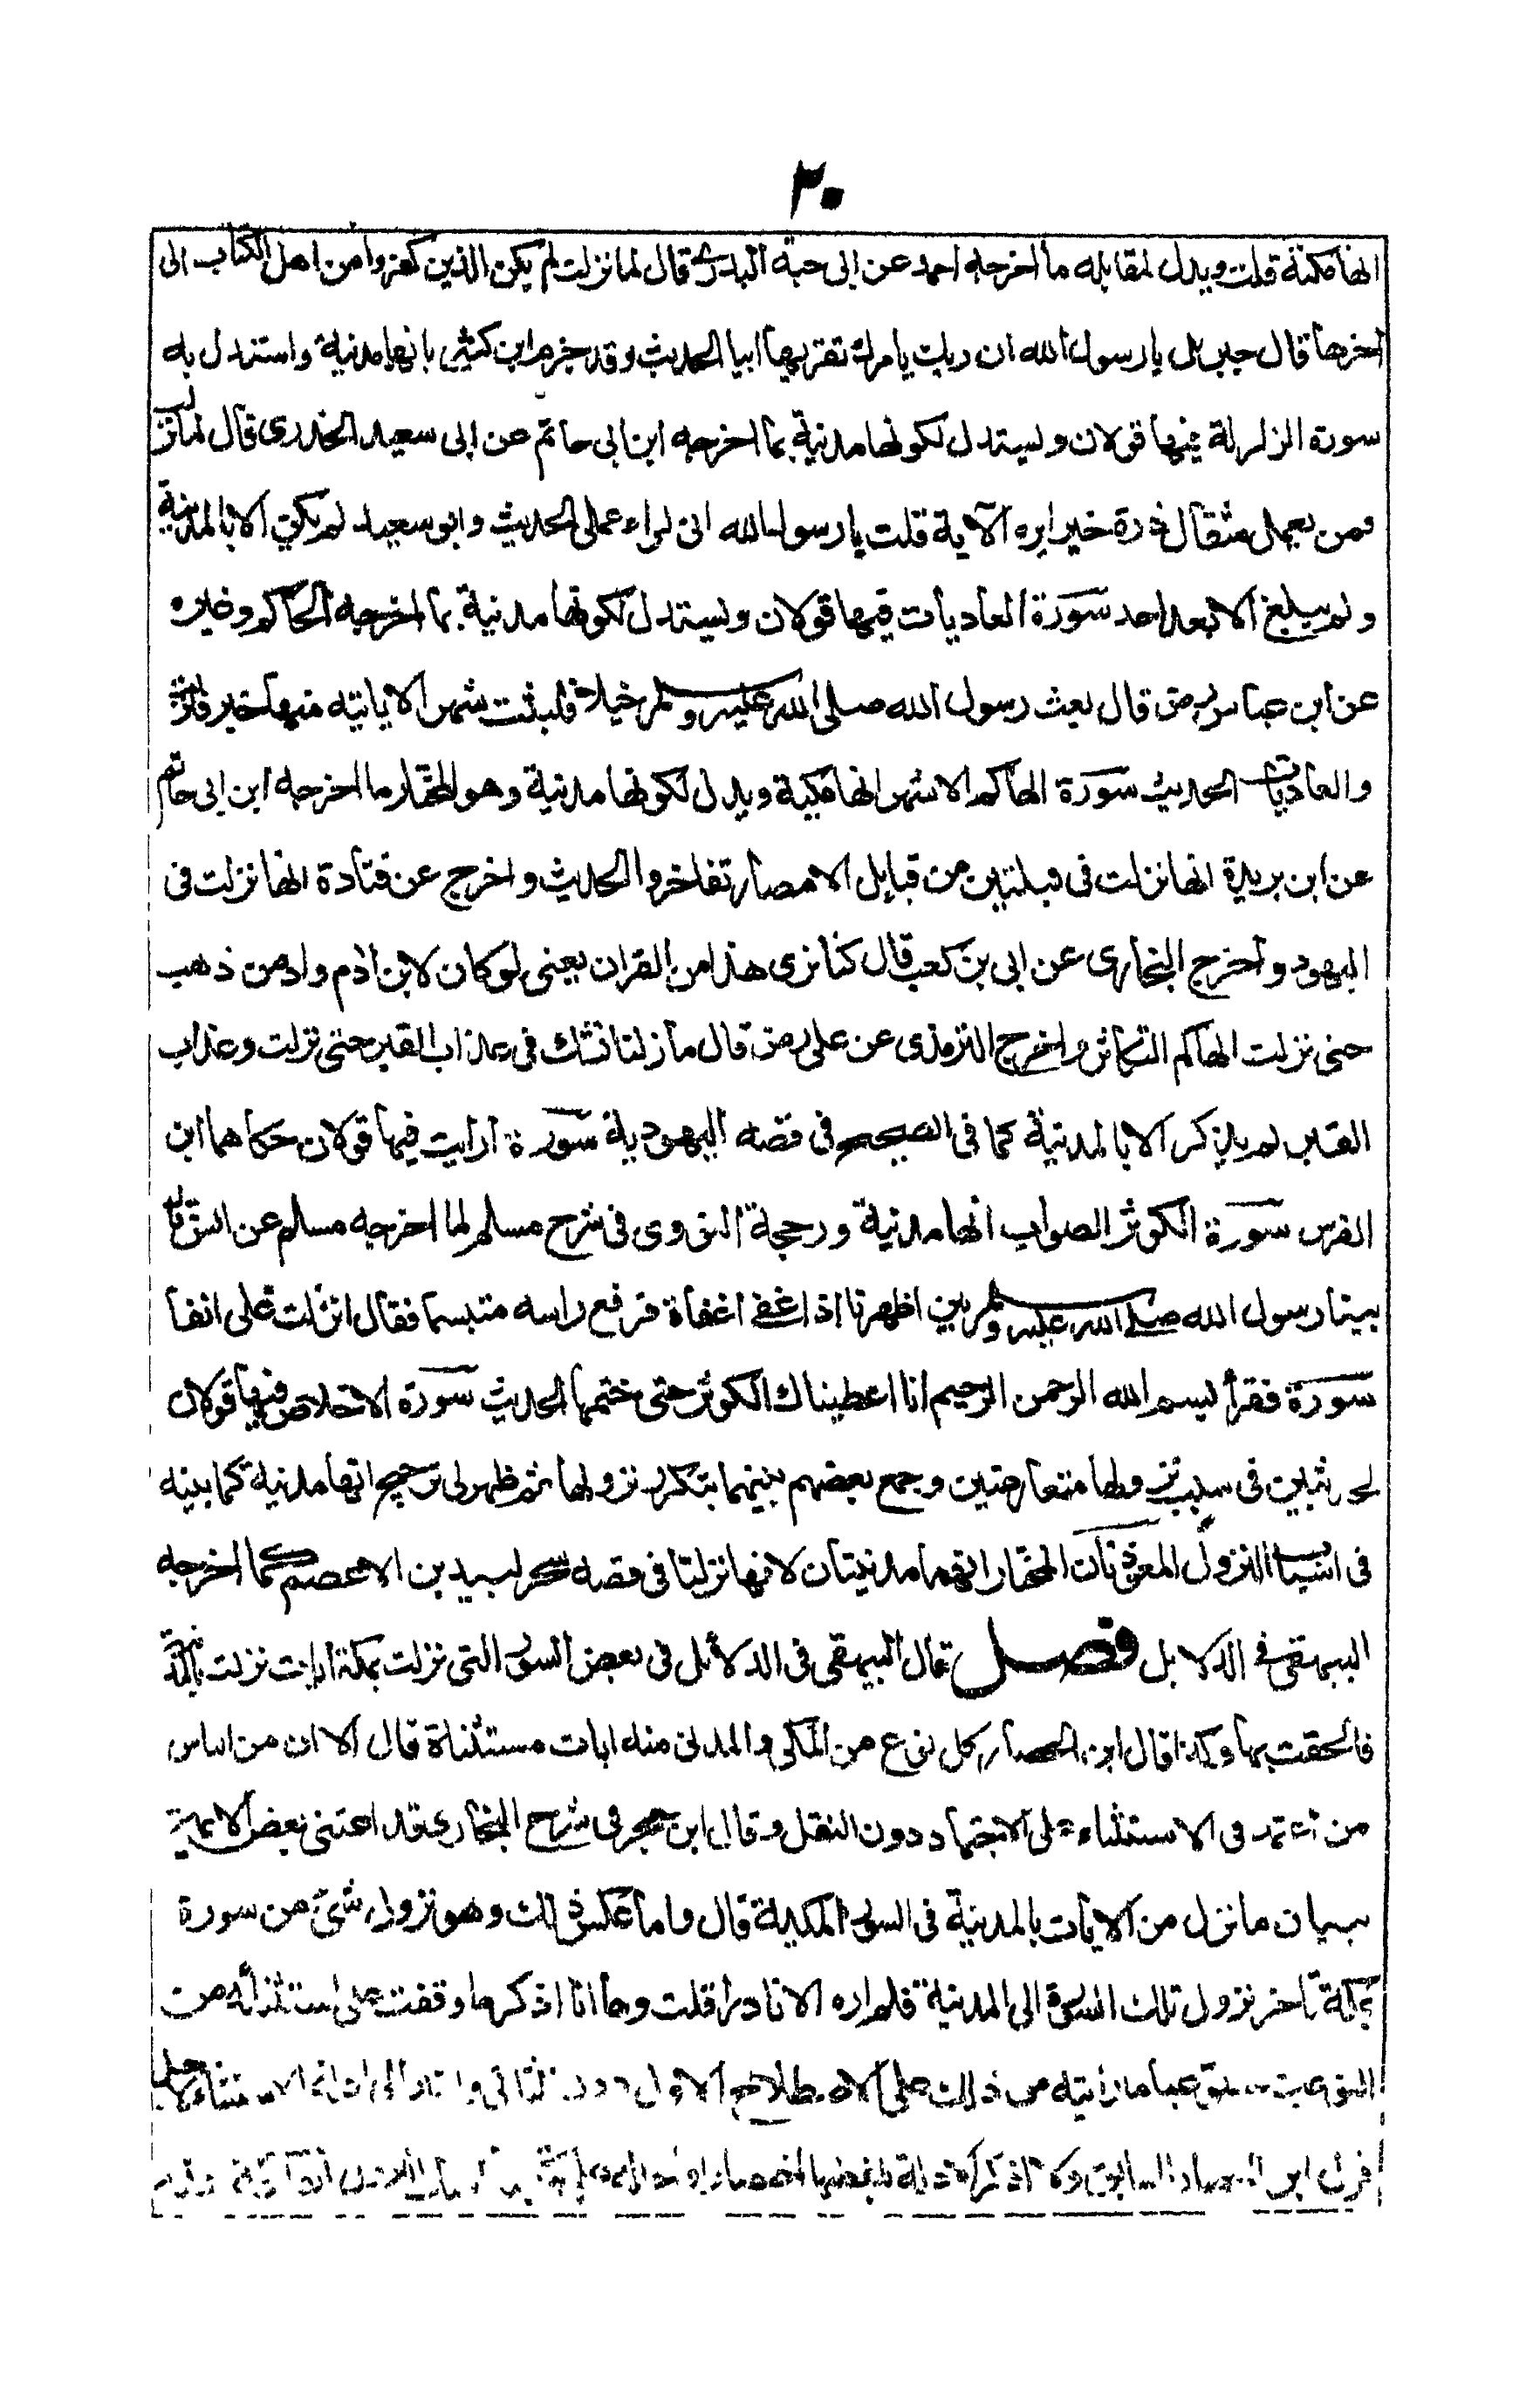 ٣٠
انها مكية قلت ويدل لمقابله ما اخرجه احمد عن ابى حبة البدرى قال لما نزلت لم يكن الذين كفروا من اهل الكتاب الى
آخرها قال جبريل يا رسول الله ان ربك يامرك تقريها ابيا الحديث وقد جزم ابن كثير بانها مدنية واستدل به
سورة الزلزلة فيها قولان ويستدل لكونها مدنية بما اخرجه ابن ابى حاتم عن ابى سعيد الخدرى قال لما نزلت
ومن يعمل مثقال ذرة خيرا يره الآية قلت يا رسول الله انى لراء عملى الحديث وابو سعيد لم يكن الا بالمدينة
ولم يبلغ الا بعد احد سورة العاديات فيها قولان ويستدل لكونها مدنية بما اخرجه الحاكم وغيره
عن ابن عباس رض قال بعث رسول الله صلى الله عليه وسلم خيلا فلبثت شهرا لا ياتيه منها خبر فانزلت
والعاديات الحديث سورة الهاكم الاشهر انها مكية ويدل لكونها مدنية وهو المختار ما اخرجه ابن ابى حاتم
عن ابن بريدة انها نزلت فى قبيلتين من قبايل الامصار تفاخروا الحديث واخرج عن قتادة انها نزلت فى
اليهود واخرج البخارى عن ابى بن كعب قال كنا نرى هذا من القران يعنى لو كان لابن ادم واد من ذهب
حتى نزلت الهاكم التكاثر واخرج الترمذى عن على رض قال ما زلنا نشك فى عذاب القبر حتى نزلت وعذاب
القبر لم يذكر الا بالمدينة كما فى الصحيح فى قصه اليهودية سورة ارايت فيها قولان حكاهما ابن
الفرس سورة الكوثر الصواب انها مدنية ورجحة النووى فى شرح مسلم لما اخرجه مسلم عن انس قال
بينا رسول الله صلى الله عليه وسلم بين اظهرنا اذ اغفى اغفاة فرفع راسه متبسما فقال انزلت على انفا
سورة فقرأ بسم الله الرحمن الرحيم انا اعطيناك الكوثر حتى ختمها الحديث سورة الاخلاص فيها قولان
لحديثين فى سبب نزولها متعارضين وجمع بعضهم بينهما بتكرر نزولها ثم ظهر لى ترجيح انها مدنية كما بينه
فى اسباب النزول المعوذتان المختار انهما مدنيتان لانها نزلتا فى قصه سحر لبيد بن الاعصم كما اخرجه
البيهقى فى الدلايل فصل قال البيهقى فى الدلائل فى بعض السور التى نزلت بمكة ايات نزلت بالمدينة
فالحقت بها وكذا قال ابن الحصار كل نوع من المكى والمدنى منه ايات مستثناة قال الا ان من الناس
من اعتمد فى الاستثناء على الاجتهاد دون النقل وقال ابن حجر فى شرح البخارى قد اعتنى بعض الائمة
ببيان ما نزل من الايات بالمدنية فى السور المكية قال واما عكس ذلك وهو نزول شئ من سورة
بمكة تاخر نزول تلك السورة الى المدنية فلم اره الا نادرا قلت وها انا اذكر ما وقفت على استثنائه من
النوعين ما رايته من ذلك على الاصطلاح الاول دون الثانى الى ادلة الاستثناء لاجل
قول ابن الحصار السابق ولا اذكر الادلة بلفظها اختصارا